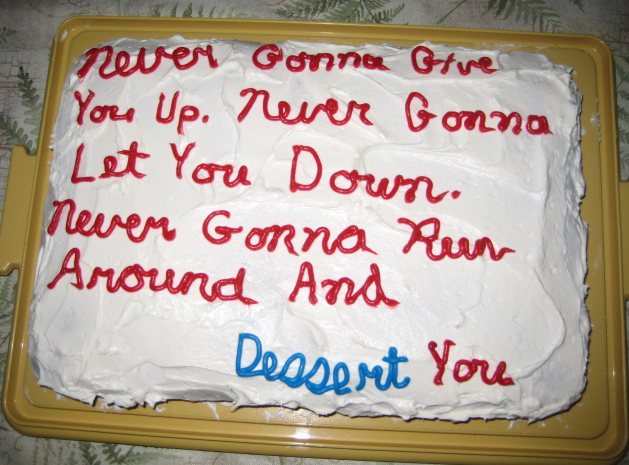 Never Gonna Give
You Up. Never Gonna
Let You Down.
Never Gonna Run
Around And
Dessert You